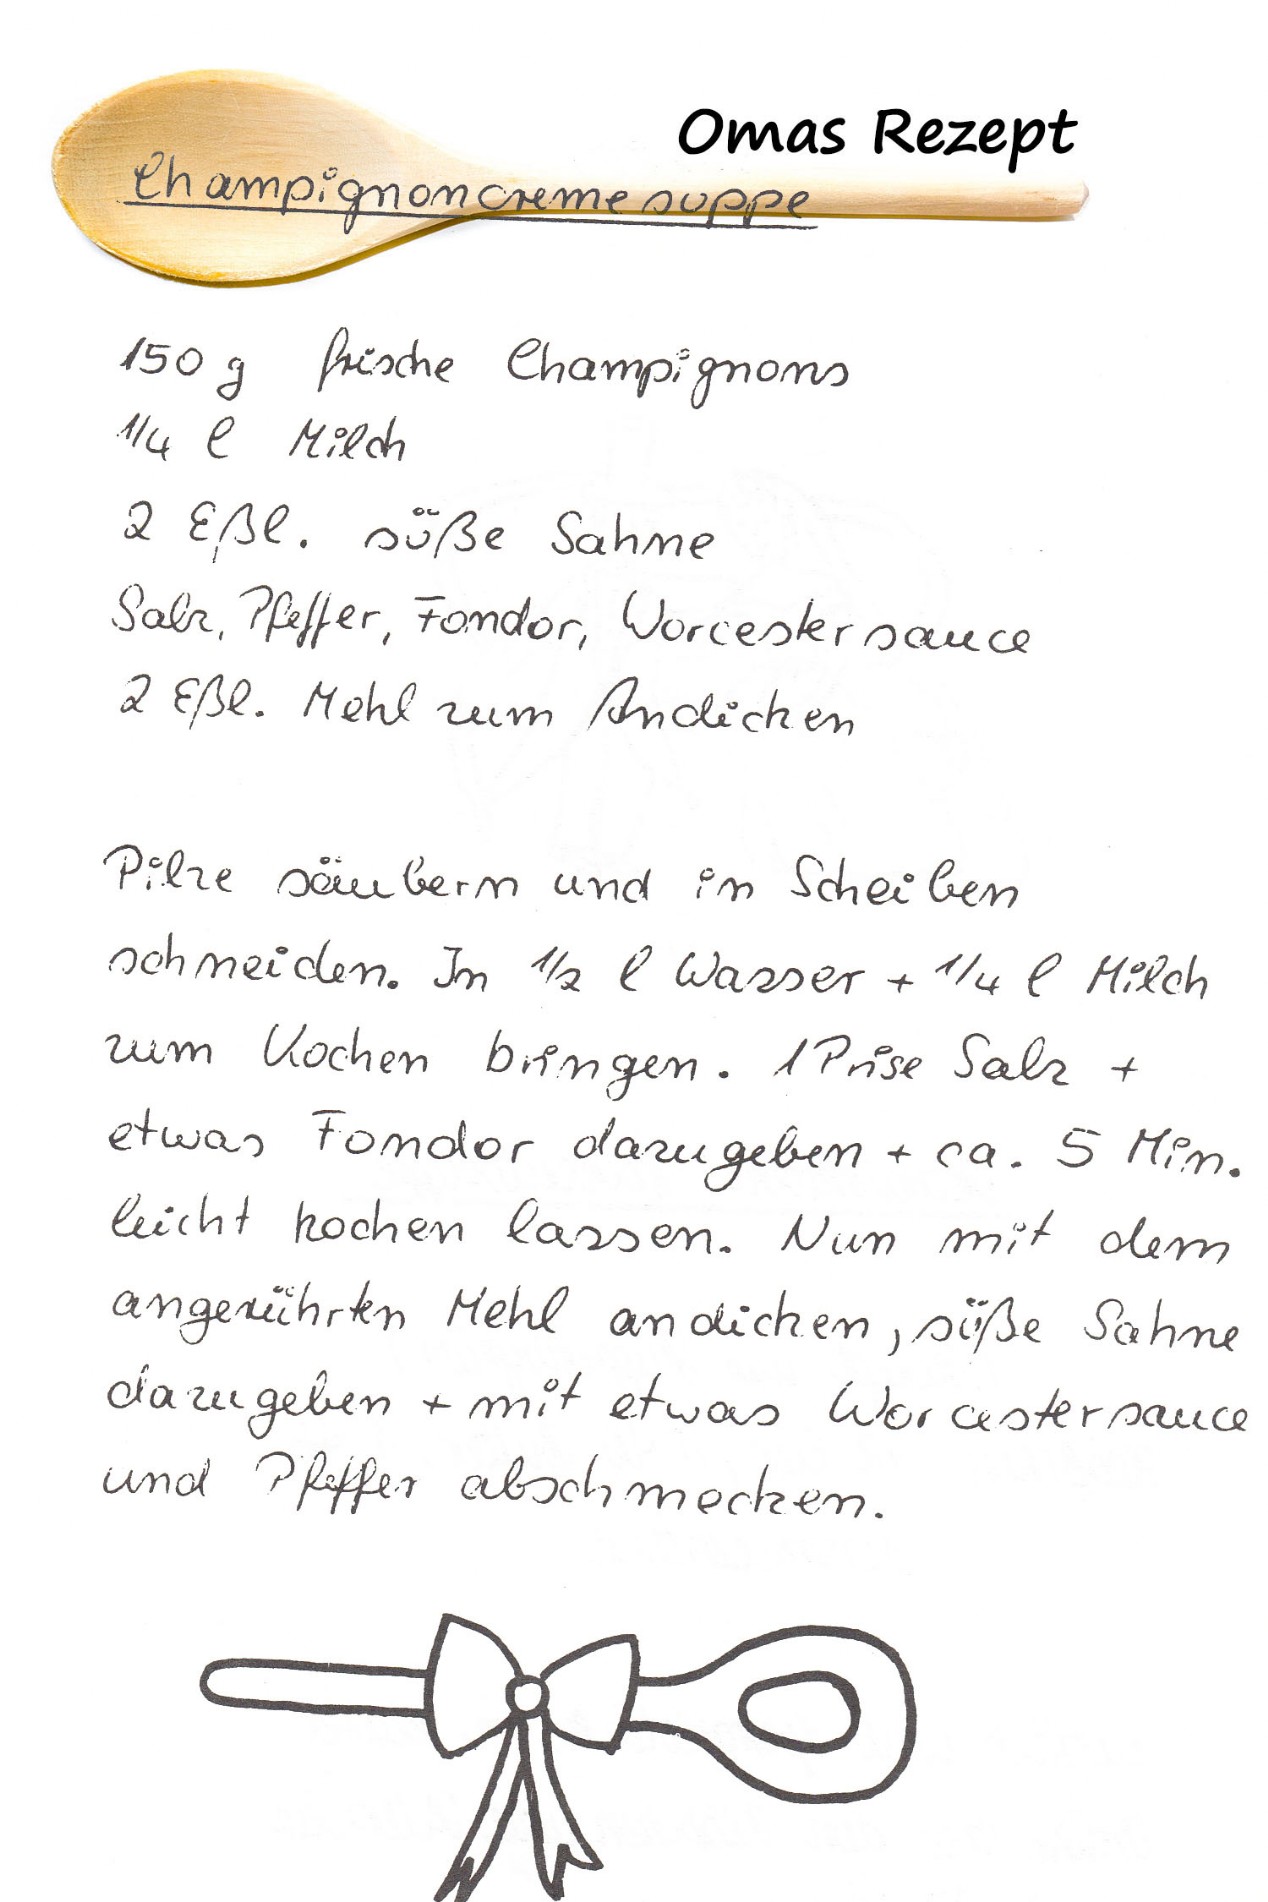 Omas Rezept
Champignoncremesuppe
150 g frische Champignons
1/4 l Milch
2 Eßl. süße Sahne
Salz, Pfeffer, Fondor, Worcestersauce
2 Eßl. Mehl zum Andicken
Pilze säubern und in Scheiben
schneiden. In 1/2 l Wasser + 1/4 l Milch
zum Kochen bringen. 1 Prise Salz +
etwas Fondor dazugeben + ca. 5 Min.
leicht kochen lassen. Nun mit dem
angerührten Mehl andicken, süße Sahne
dazugeben + mit etwas Worcestersauce
und Pfeffer abschmecken.